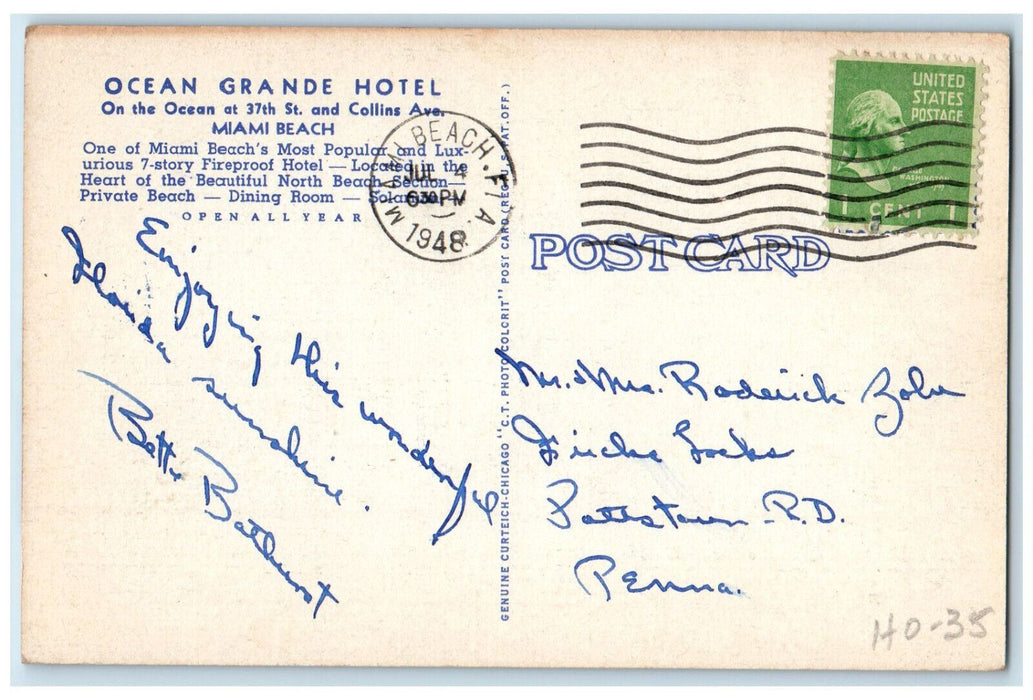 OCEAN GRANDE HOTEL
On the Ocean at 37th St. and Collins Ave.
MIAMI BEACH
One of Miami Beach's Most Popular and Lux-
urious 7-story Fireproof Hotel — Located in the
Heart of the Beautiful North Beach Section —
Private Beach — Dining Room —
OPEN ALL YEAR
MIAMI BEACH, FLA.
JUL 4
630PM
1948
UNITED
STATES
POSTAGE
WASHINGTON
1 CENT 1
POST CARD
Enjoying this wonderful
Florida sunshine.
Bathurst
GENUINE CURTEICH-CHICAGO "C.T. PHOTO COLORIT" POST CARD (REG. U.S. PAT. OFF.)
Mr. & Mrs. Roderick
Fricks Locks
Pottstown R.D.
Penna.
HO-35